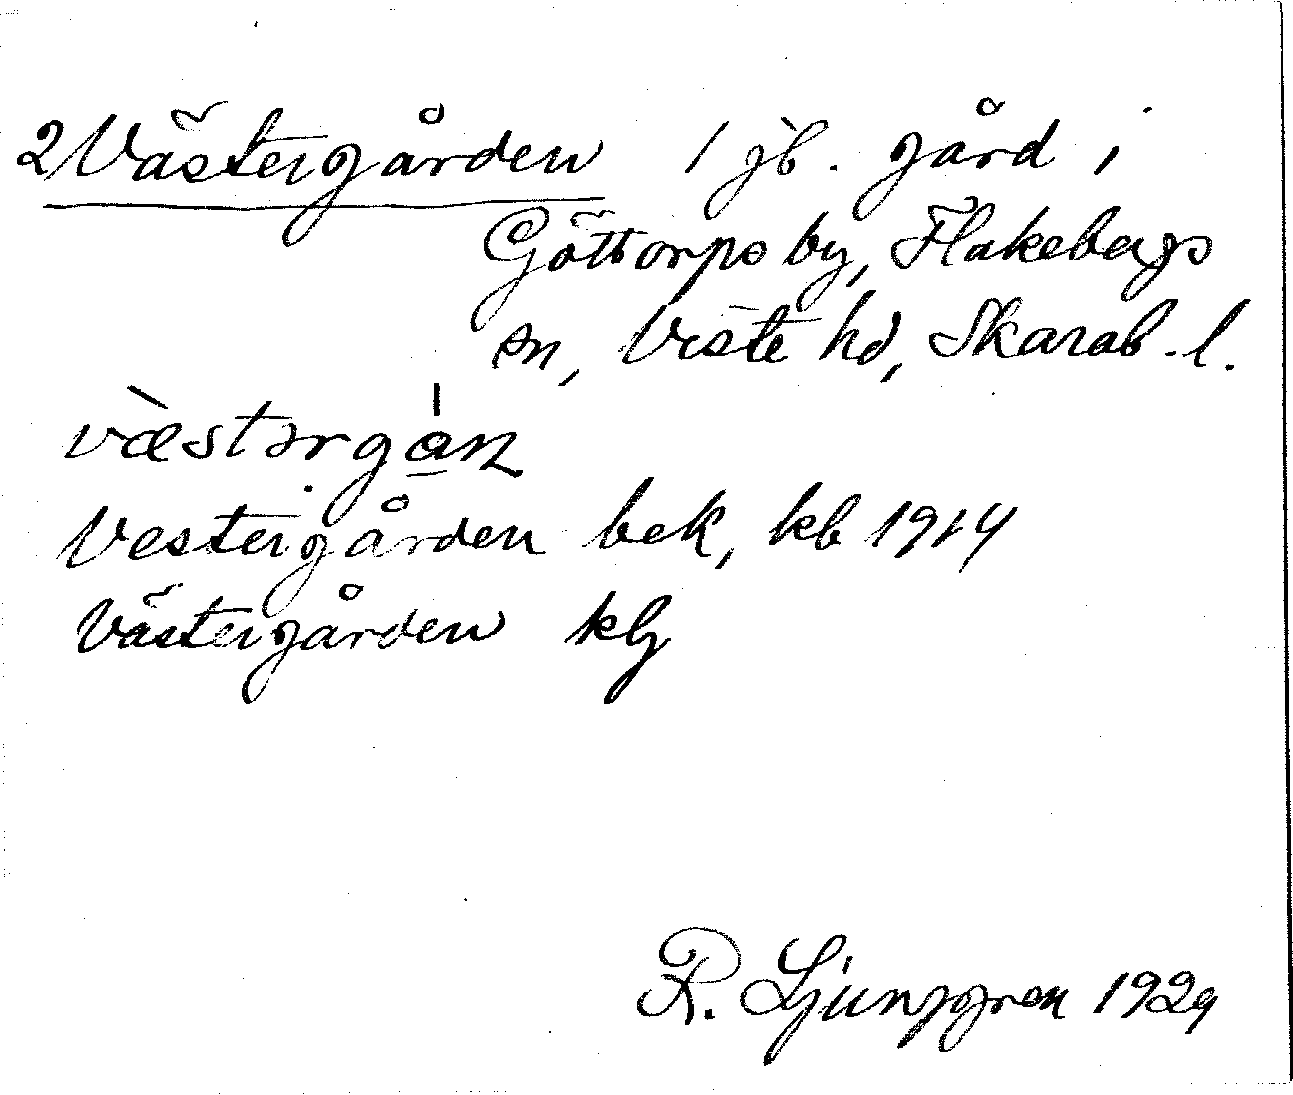 2 Västergården 1 jb. gård i
Göttorps by, Flakebergs
sn, Viste hd, Skarab. l.
væstərgan
Vestergården bek, kb 1914
Västergården kG
R. Ljunggren 1929